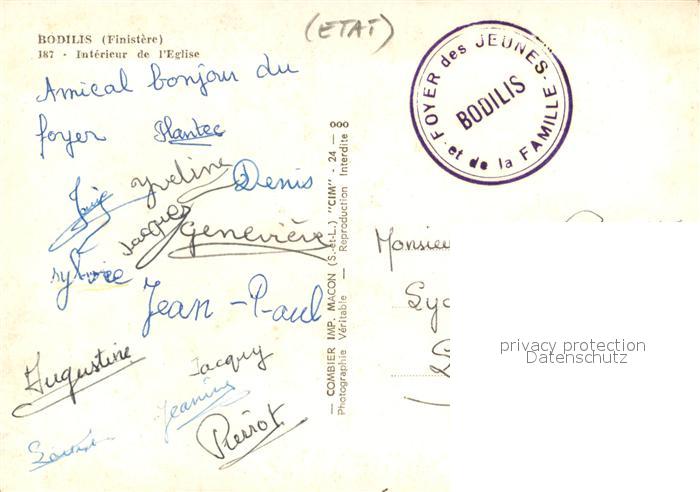 (ETAT)
BODILIS (Finistère)
187 - Intérieur de l'Eglise
Amical bonjour du
foyer Plantec
Yveline Denis
Jacques Geneviève
Sylvie
Jean-Paul
Augustine
Jacquy
Jeanine
Pierrot
— COMBIER IMP. MACON (S.-et-L.) "CIM" - 24 — 000
Photographie Véritable — Reproduction Interdite
FOYER des JEUNES
et de la FAMILLE
BODILIS
Monsieu
privacy protection
Datenschutz